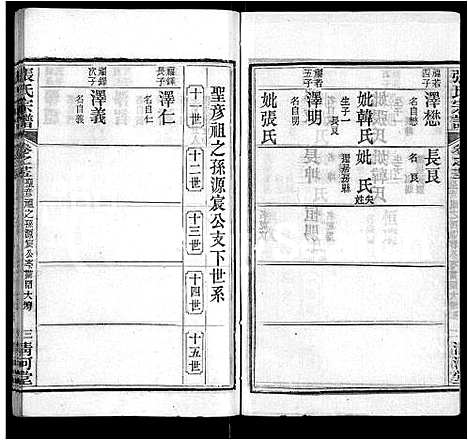 張氏宗譜
瀛若
四子
澤懋
名自懋
妣韓氏
生子一
長良
長良
名良
遷居務縣
妣氏失姓
瀛若
五子
澤明
名自明
妣張氏
清河堂
聖彥祖之孫源宸公支下世系
十一世
十二世
十三世
十四世
十五世
瀛鐸
長子
澤仁
名自仁
瀛鐸
次子
澤義
名自義
張氏宗譜
聖彥祖之孫源宸公
三
清河堂